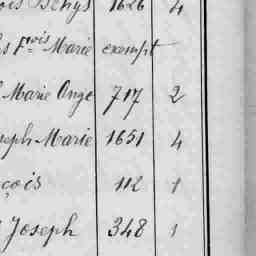 ois Denys 1626 4
s Fois Marie exempt
Marie Ange 717 2
seph Marie 1651 4
çois 112 1
Joseph 348 1